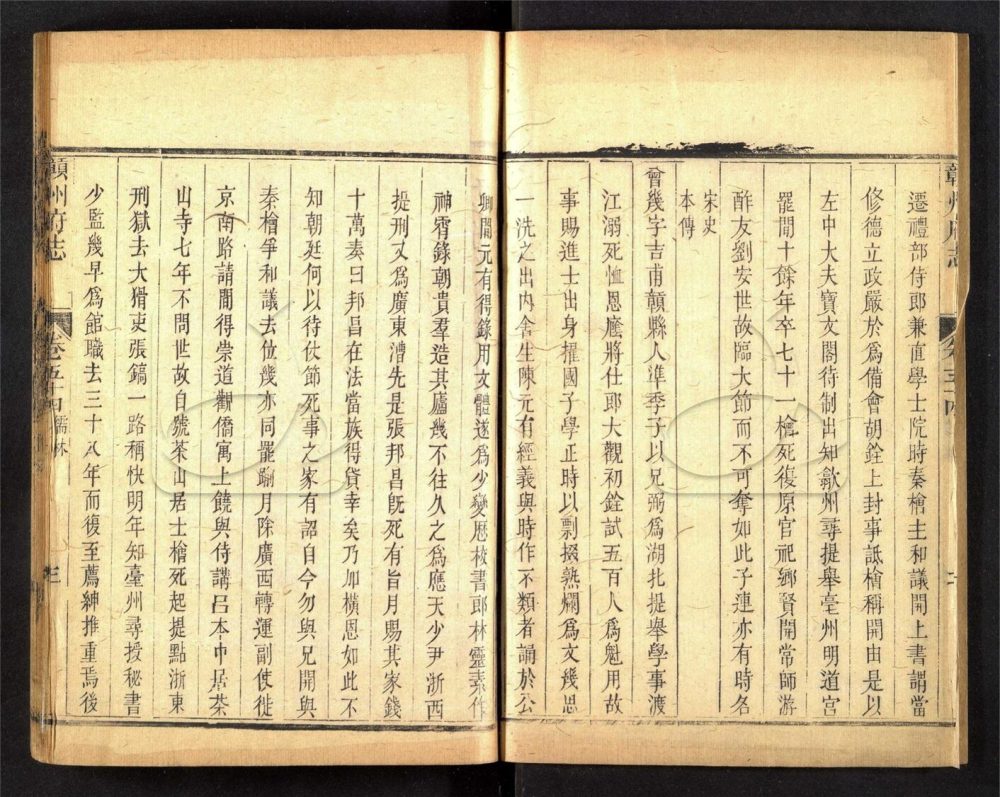 贛州府志
遷禮部侍郎兼直學士院時秦檜主和議開上書謂當
修德立政嚴於爲備會胡銓上封事詆檜稱開由是以
左中大夫寶文閣待制出知歙州尋提舉亳州明道宮
罷閒十餘年卒七十一檜死復原官祀鄉賢開常師游
酢友劉安世故臨大節而不可奪如此子連亦有時名
宋史
本傳
曾幾字吉甫贛縣人準季子以兄弼爲湖北提舉學事渡
江溺死恤恩廕將仕郎大觀初銓試五百人爲魁用故
事賜進士出身擢國子學正時以剽掇熟爛爲文幾思
一洗之出內舍生陳元有經義與時作不類者誦於公
卿間元有得錄用文體遂爲少變歷校書郎林靈素作
神霄錄朝貴羣造其廬幾不往久之爲應天少尹浙西
提刑又爲廣東漕先是張邦昌旣死有旨月賜其家錢
十萬奏曰邦昌在法當族得貸幸矣乃加橫恩如此不
知朝廷何以待仗節死事之家有詔自今勿與兄開與
秦檜爭和議去位幾亦同罷踰月除廣西轉運副使徙
京南路請閒得崇道觀僑寓上饒與侍講呂本中居茶
山寺七年不問世故自號茶山居士檜死起提點浙東
刑獄去大猾吏張鎬一路稱快明年知臺州尋授秘書
少監幾早爲館職去三十八年而復至薦紳推重焉後
贛州府志
卷五十四
儒林
三